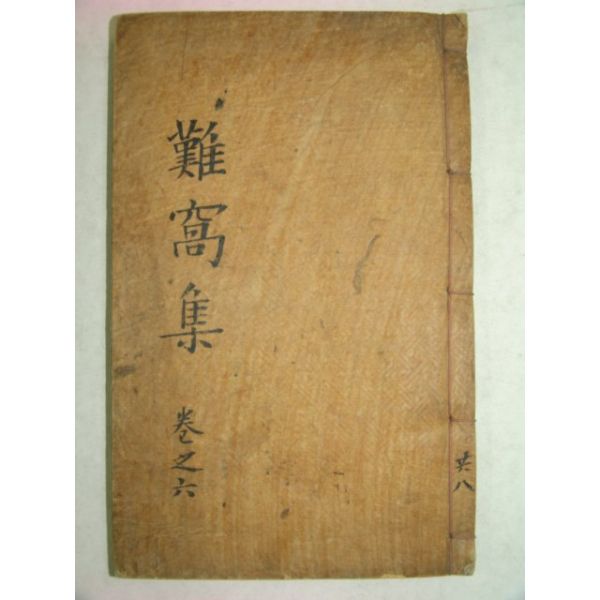 難窩集
卷之六
共八